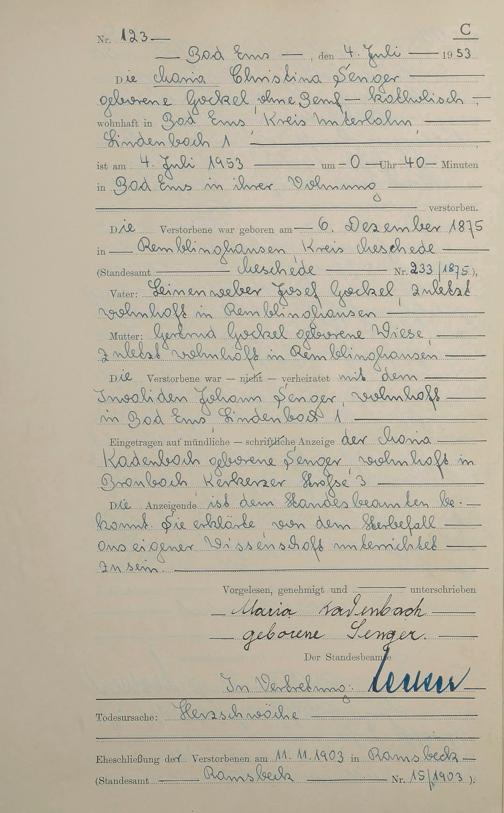 C
Nr. 123
Bad Ems, den 4. Juli 1953
Die Maria Christina Senger
geborene Gockel, ohne Beruf - katholisch -
wohnhaft in Bad Ems, Kreis Unterlahn,
Lindenbach 1
ist am 4. Juli 1953 um 0 Uhr 40 Minuten
in Bad Ems in ihrer Wohnung
verstorben.
Die Verstorbene war geboren am 6. Dezember 1875
in Remblinghausen Kreis Meschede
(Standesamt Meschede Nr. 233/1875),
Vater: Leinenweber Josef Gockel, zuletzt
wohnhaft in Remblinghausen
Mutter: Gertrud Gockel geborene Wiese,
zuletzt wohnhaft in Remblinghausen
Die Verstorbene war — nicht — verheiratet mit dem
Invaliden Johann Senger, wohnhaft
in Bad Ems Lindenbach 1
Eingetragen auf mündliche — schriftliche Anzeige der Maria
Kadenbach geborene Senger, wohnhaft in
Braubach Kerkerser Straße 3
Die Anzeigende ist dem Standesbeamten be-
kannt. Sie erklärte von dem Sterbefall
aus eigener Wissenschaft unterrichtet
zu sein.
Vorgelesen, genehmigt und unterschrieben
Maria Kadenbach
geborene Senger.
Der Standesbeamte
In Vertretung:
Todesursache: Herzschwäche
Eheschließung der Verstorbenen am 11.11.1903 in Ramsbeck
(Standesamt Ramsbeck Nr. 15/1903).